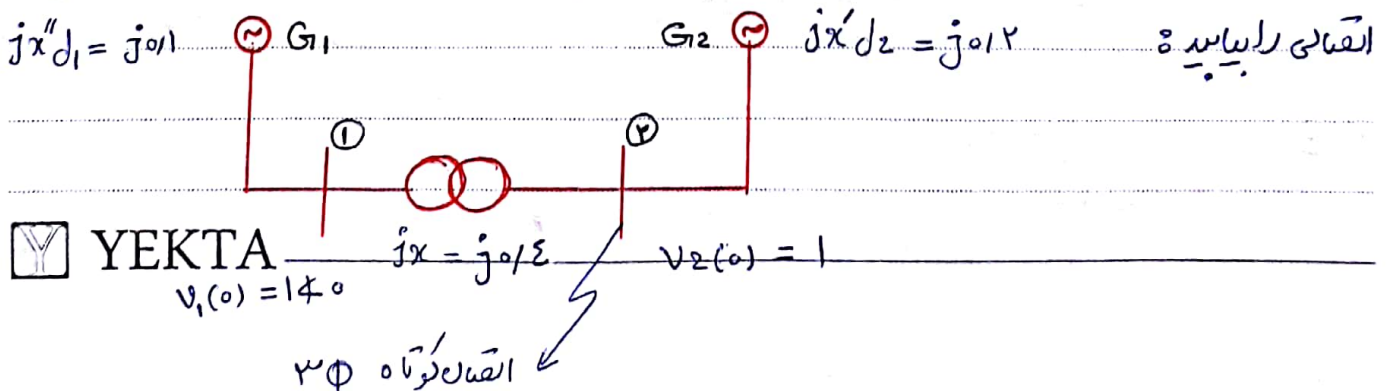 jx"d₁ = j۰/۱ G₁ G₂ jx'd₂ = j۰/۲ اتصالی را بیابید :
① ②
YEKTA jx = j۰/٤ V₂(۰) = ۱
V₁(۰) = ۱∡۰
اتصال کوتاه ۳Φ